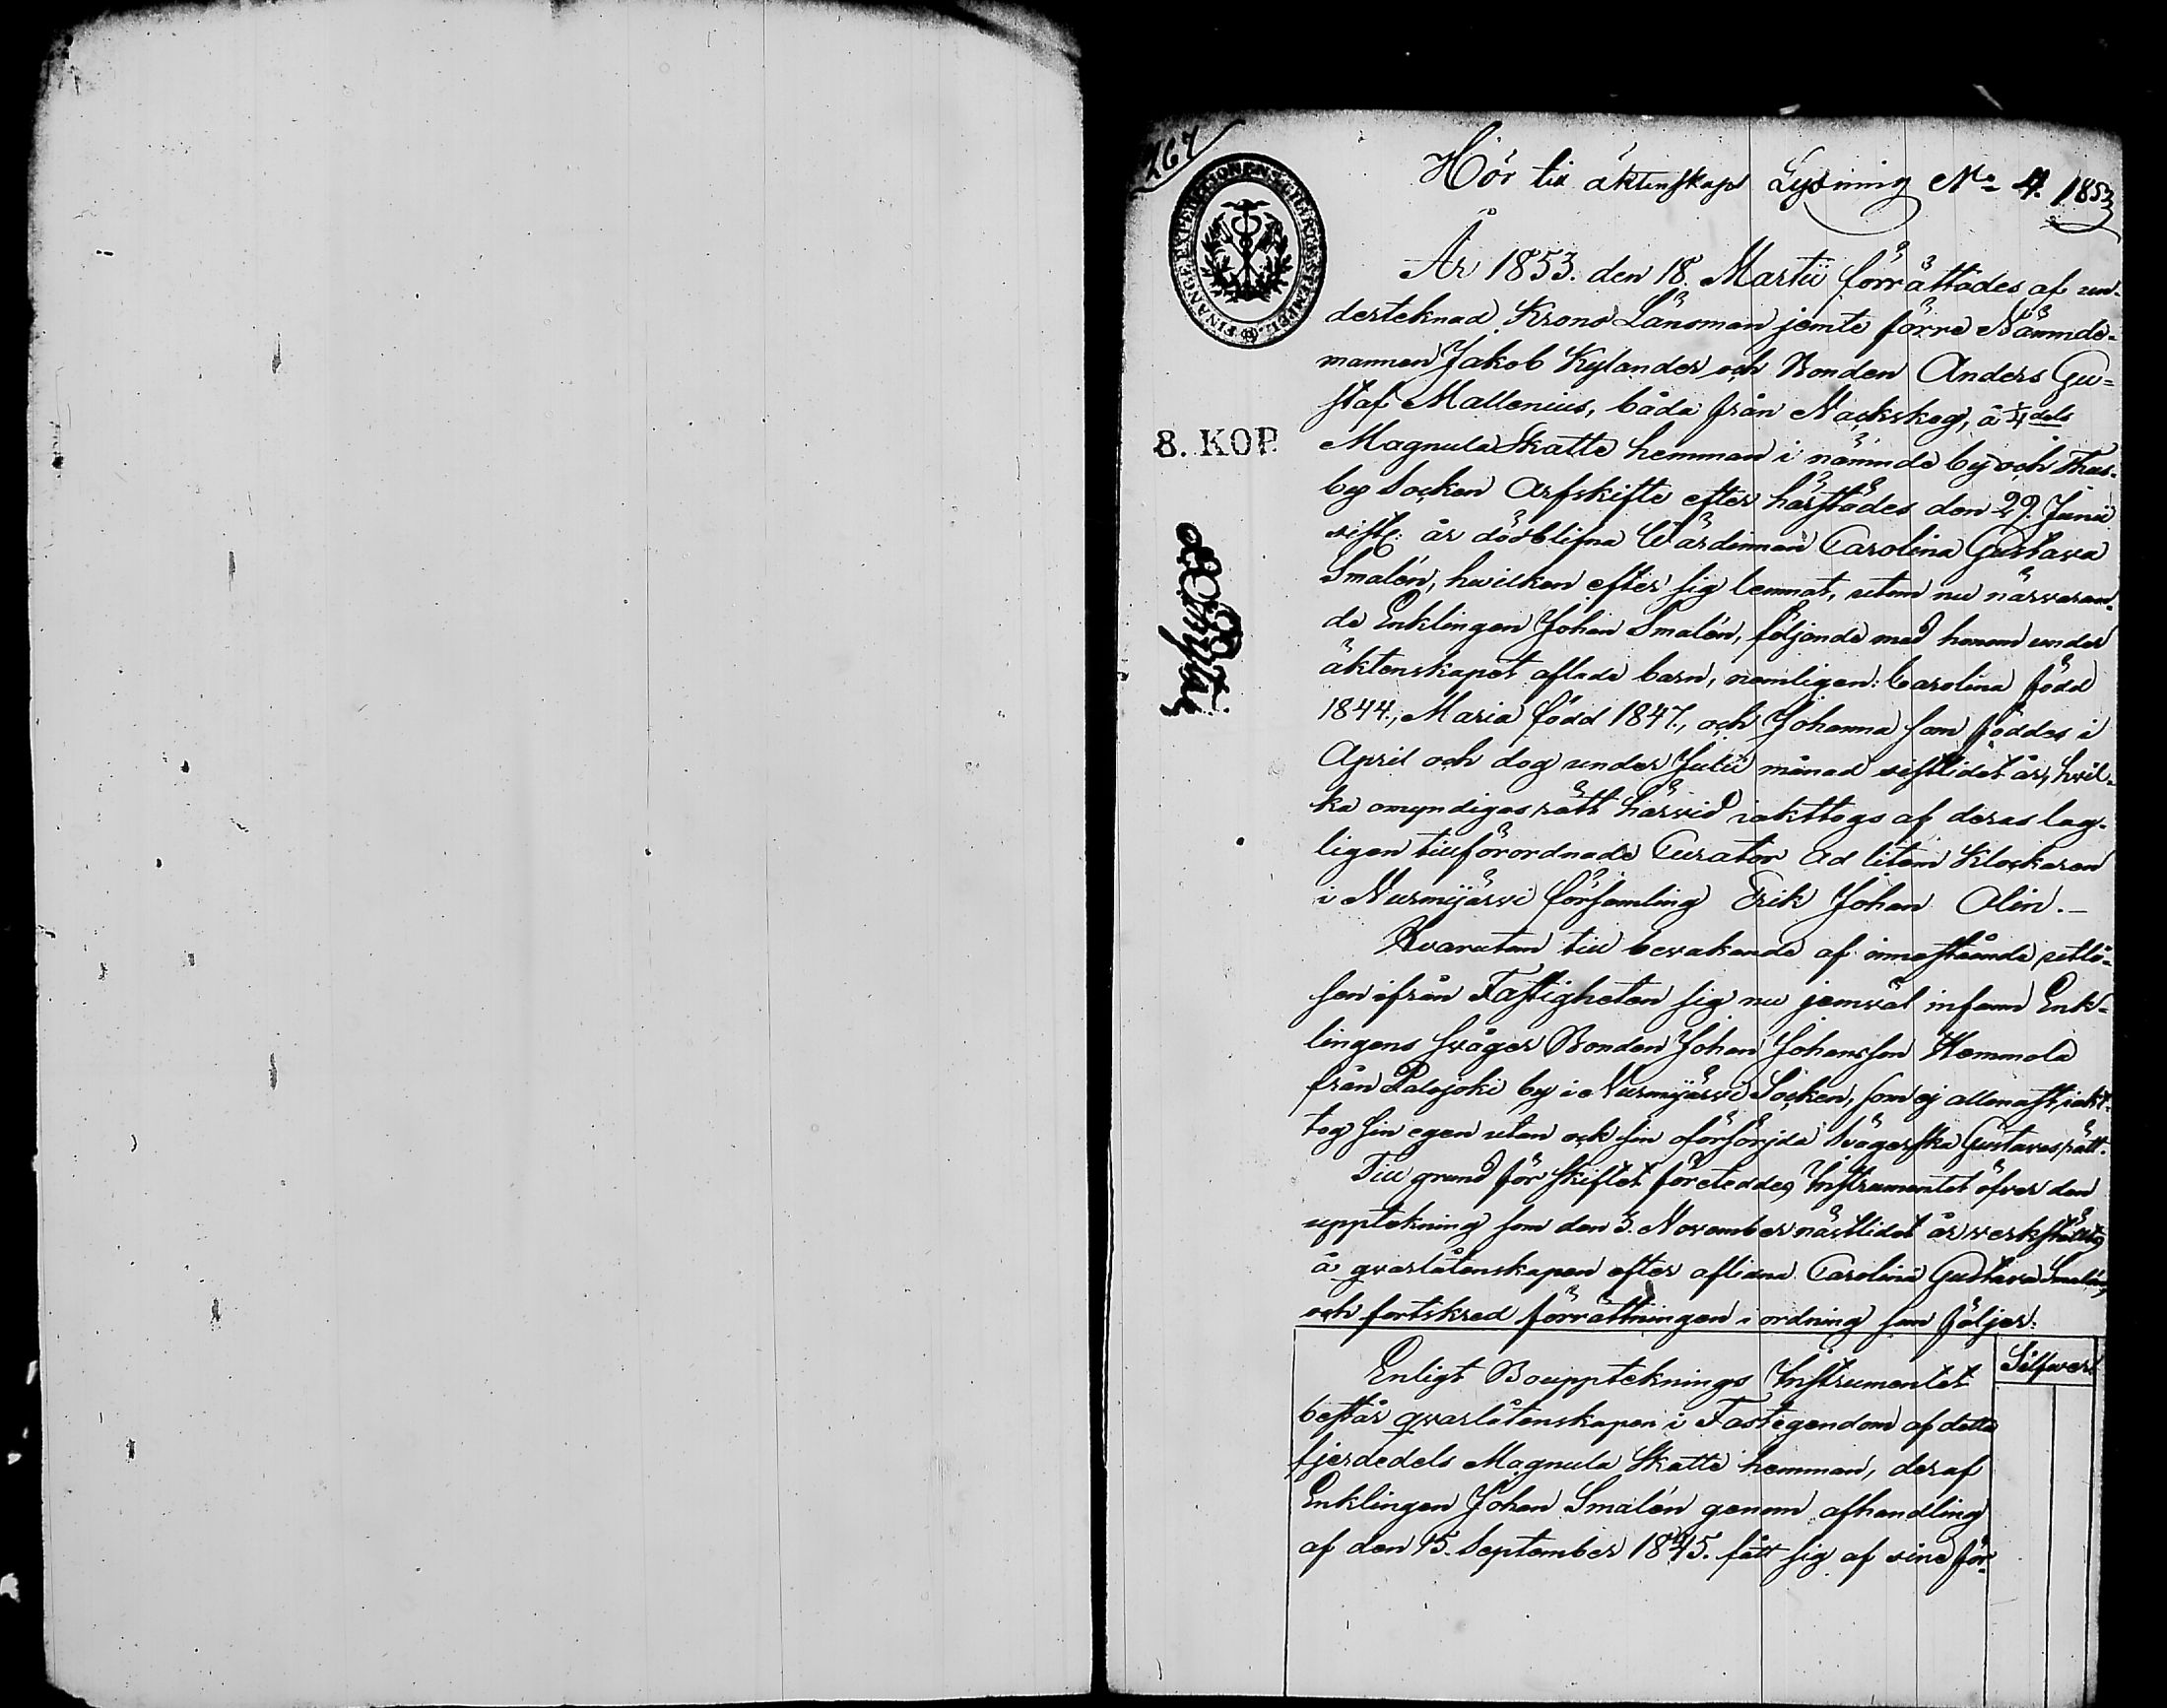 267
Hör till äktenskaps Lysning No 4. 1853
FINANCE EXPEDITIONENS CHARTÆ STEMPEL
8. KOP.
År 1853. den 18. Martii förrättades af un-
derteknad Krono Länsman jemte förre Nämnde-
mannen Jakob Kylander och Bonden Anders Gu=
staf Mallenius, båda från Nackskog, å 1/4dels
Magnula Skatte hemman i nämnde by och Thus-
by Socken Arfskifte efter härstädes den 29. Junii
sistl: år dödblifna Värdinnan Carolina Gustava
Smalén, hvilken efter sig lemnat, utom nu närvaran-
de Enklingen Johan Smalén, följande med honom under
äktenskapet aflade barn, nemligen: Carolina född
1844., Maria född 1847., och Johanna som föddes i
April och dog under Julii månad sistlidet år, hvil-
ka omyndigas rätt härvid iakttogs af deras lag-
ligen tillförordnade Curator ad litem Klockaren
i Nurmijärvi församling Erik Johan Olin.-
Hvarutom till bevakande af innestående utlö-
sen ifrån Fastigheten sig nu jemväl infann Enk-
lingens Svåger Bonden Johan Johansson Hemmola
från Palojoki by i Nurmijärvi Socken, som ej allenast iakt-
tog sin egen utan ock sin oförsörjda Svägerska Gustavas rätt.
Till grund för Skiftet företeddes Instrumentet öfver den
uppteckning som den 3. November nästlidet år verkstältes
å qvarlåtenskapen efter aflidna Carolina Gustava Smalén,
och fortskred förrättningen i ordning som följer:
Silfver
Enligt Bouppteknings Instrumentet
består qvarlåtenskapen i Fastegendom af detta
fjerdedels Magnula Skatte hemman, deraf
Enklingen Johan Smalén genom afhandling
af den 15. September 1845. fått sig af sine för-